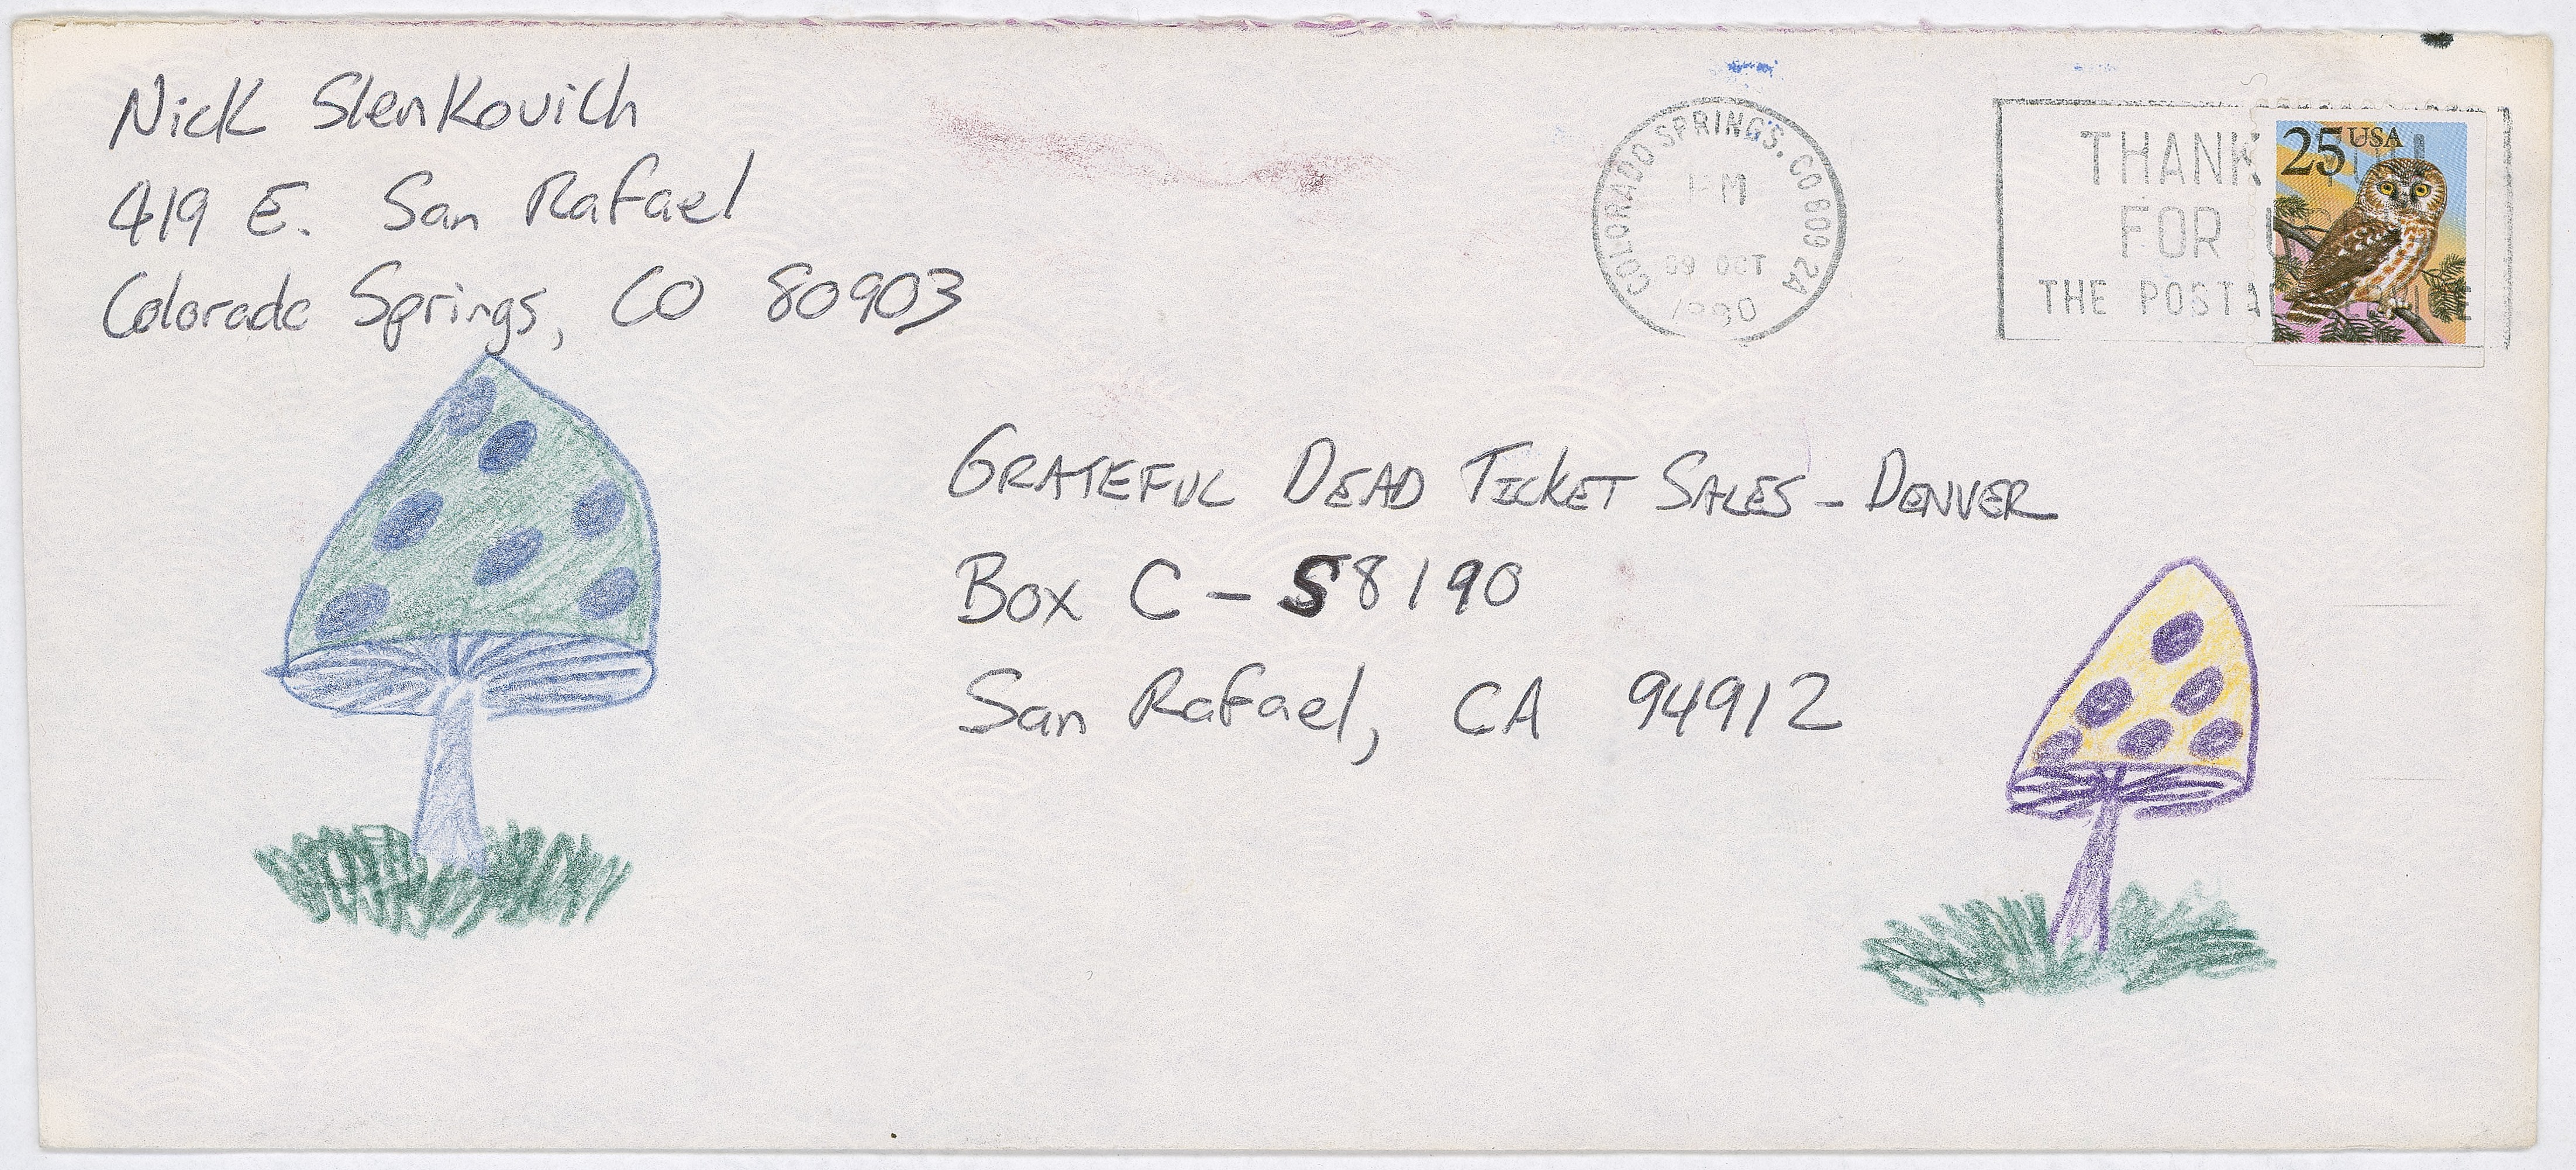 Nick Slenkovich
419 E. San Rafael
Colorado Springs, CO 80903
COLORADO SPRINGS, CO 809 2A
PM
09 OCT
1990
THANK YOU
FOR
THE POSTAL
25 USA
GRATEFUL DEAD TICKET SALES - DENVER
Box C - S8190
San Rafael, CA 94912